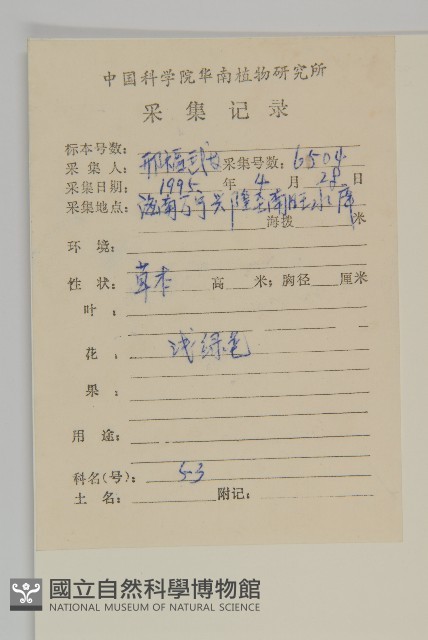 中国科学院华南植物研究所
采集记录
标本号数:
采集人: 邢福武 采集号数: 6504
采集日期: 1995 年 4 月 28 日
采集地点: 海南万宁兴隆 南旺水库
海拨 米
环境:
性状: 草本 高 米; 胸径 厘米
叶:
花: 浅绿色
果:
用途:
科名(号): 53
土名: 附记:
國立自然科學博物館
NATIONAL MUSEUM OF NATURAL SCIENCE